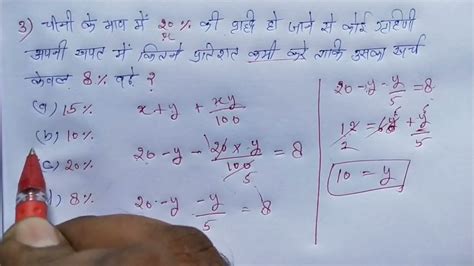 3) चीनी के भाव में 20% की वृद्धि हो जाने से कोई गृहिणी
x
अपनी खपत में कितने प्रतिशत कमी करे ताकि उसका खर्च
केवल 8% बढ़े ?
(a) 15%
(b) 10%
(c) 20%
) 8%
x + y + xy/100
20 - y - 20 × y/100 = 8
5
20 - y - y/5 = 8
20 - y - y/5 = 8
12 = 6y/5
2
10 = y